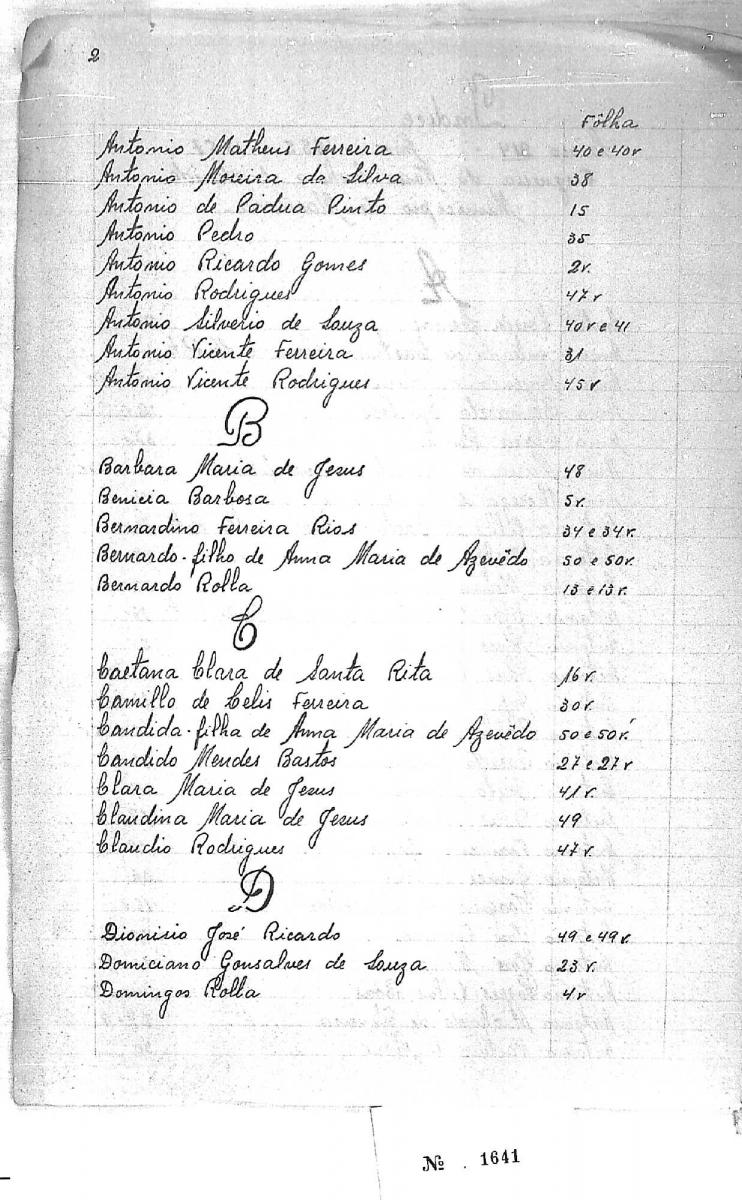 2
Fôlha
Antonio Matheus Ferreira 40 e 40v
Antonio Moreira da Silva 38
Antonio de Padua Pinto 15
Antonio Pedro 35
Antonio Ricardo Gomes 2v.
Antonio Rodrigues 47v
Antonio Silverio de Souza 40v e 41
Antonio Vicente Ferreira 31
Antonio Vicente Rodrigues 45v
B
Barbara Maria de Jesus 48
Benicia Barbosa 5v.
Bernardino Ferreira Rios 34 e 34v.
Bernardo-filho de Anna Maria de Azevêdo 50 e 50v.
Bernardo Rolla 13 e 13v.
C
Caetana Clara de Santa Rita 16v.
Camillo de Celis Ferreira 30v.
Candida-filha de Anna Maria de Azevêdo 50 e 50v.
Candido Mendes Bastos 27 e 27v
Clara Maria de Jesus 41v.
Claudina Maria de Jesus 49
Claudio Rodrigues 47v.
D
Dionisio José Ricardo 49 e 49v.
Domiciano Gonsalves de Souza 23v.
Domingos Rolla 4v
Nº 1641